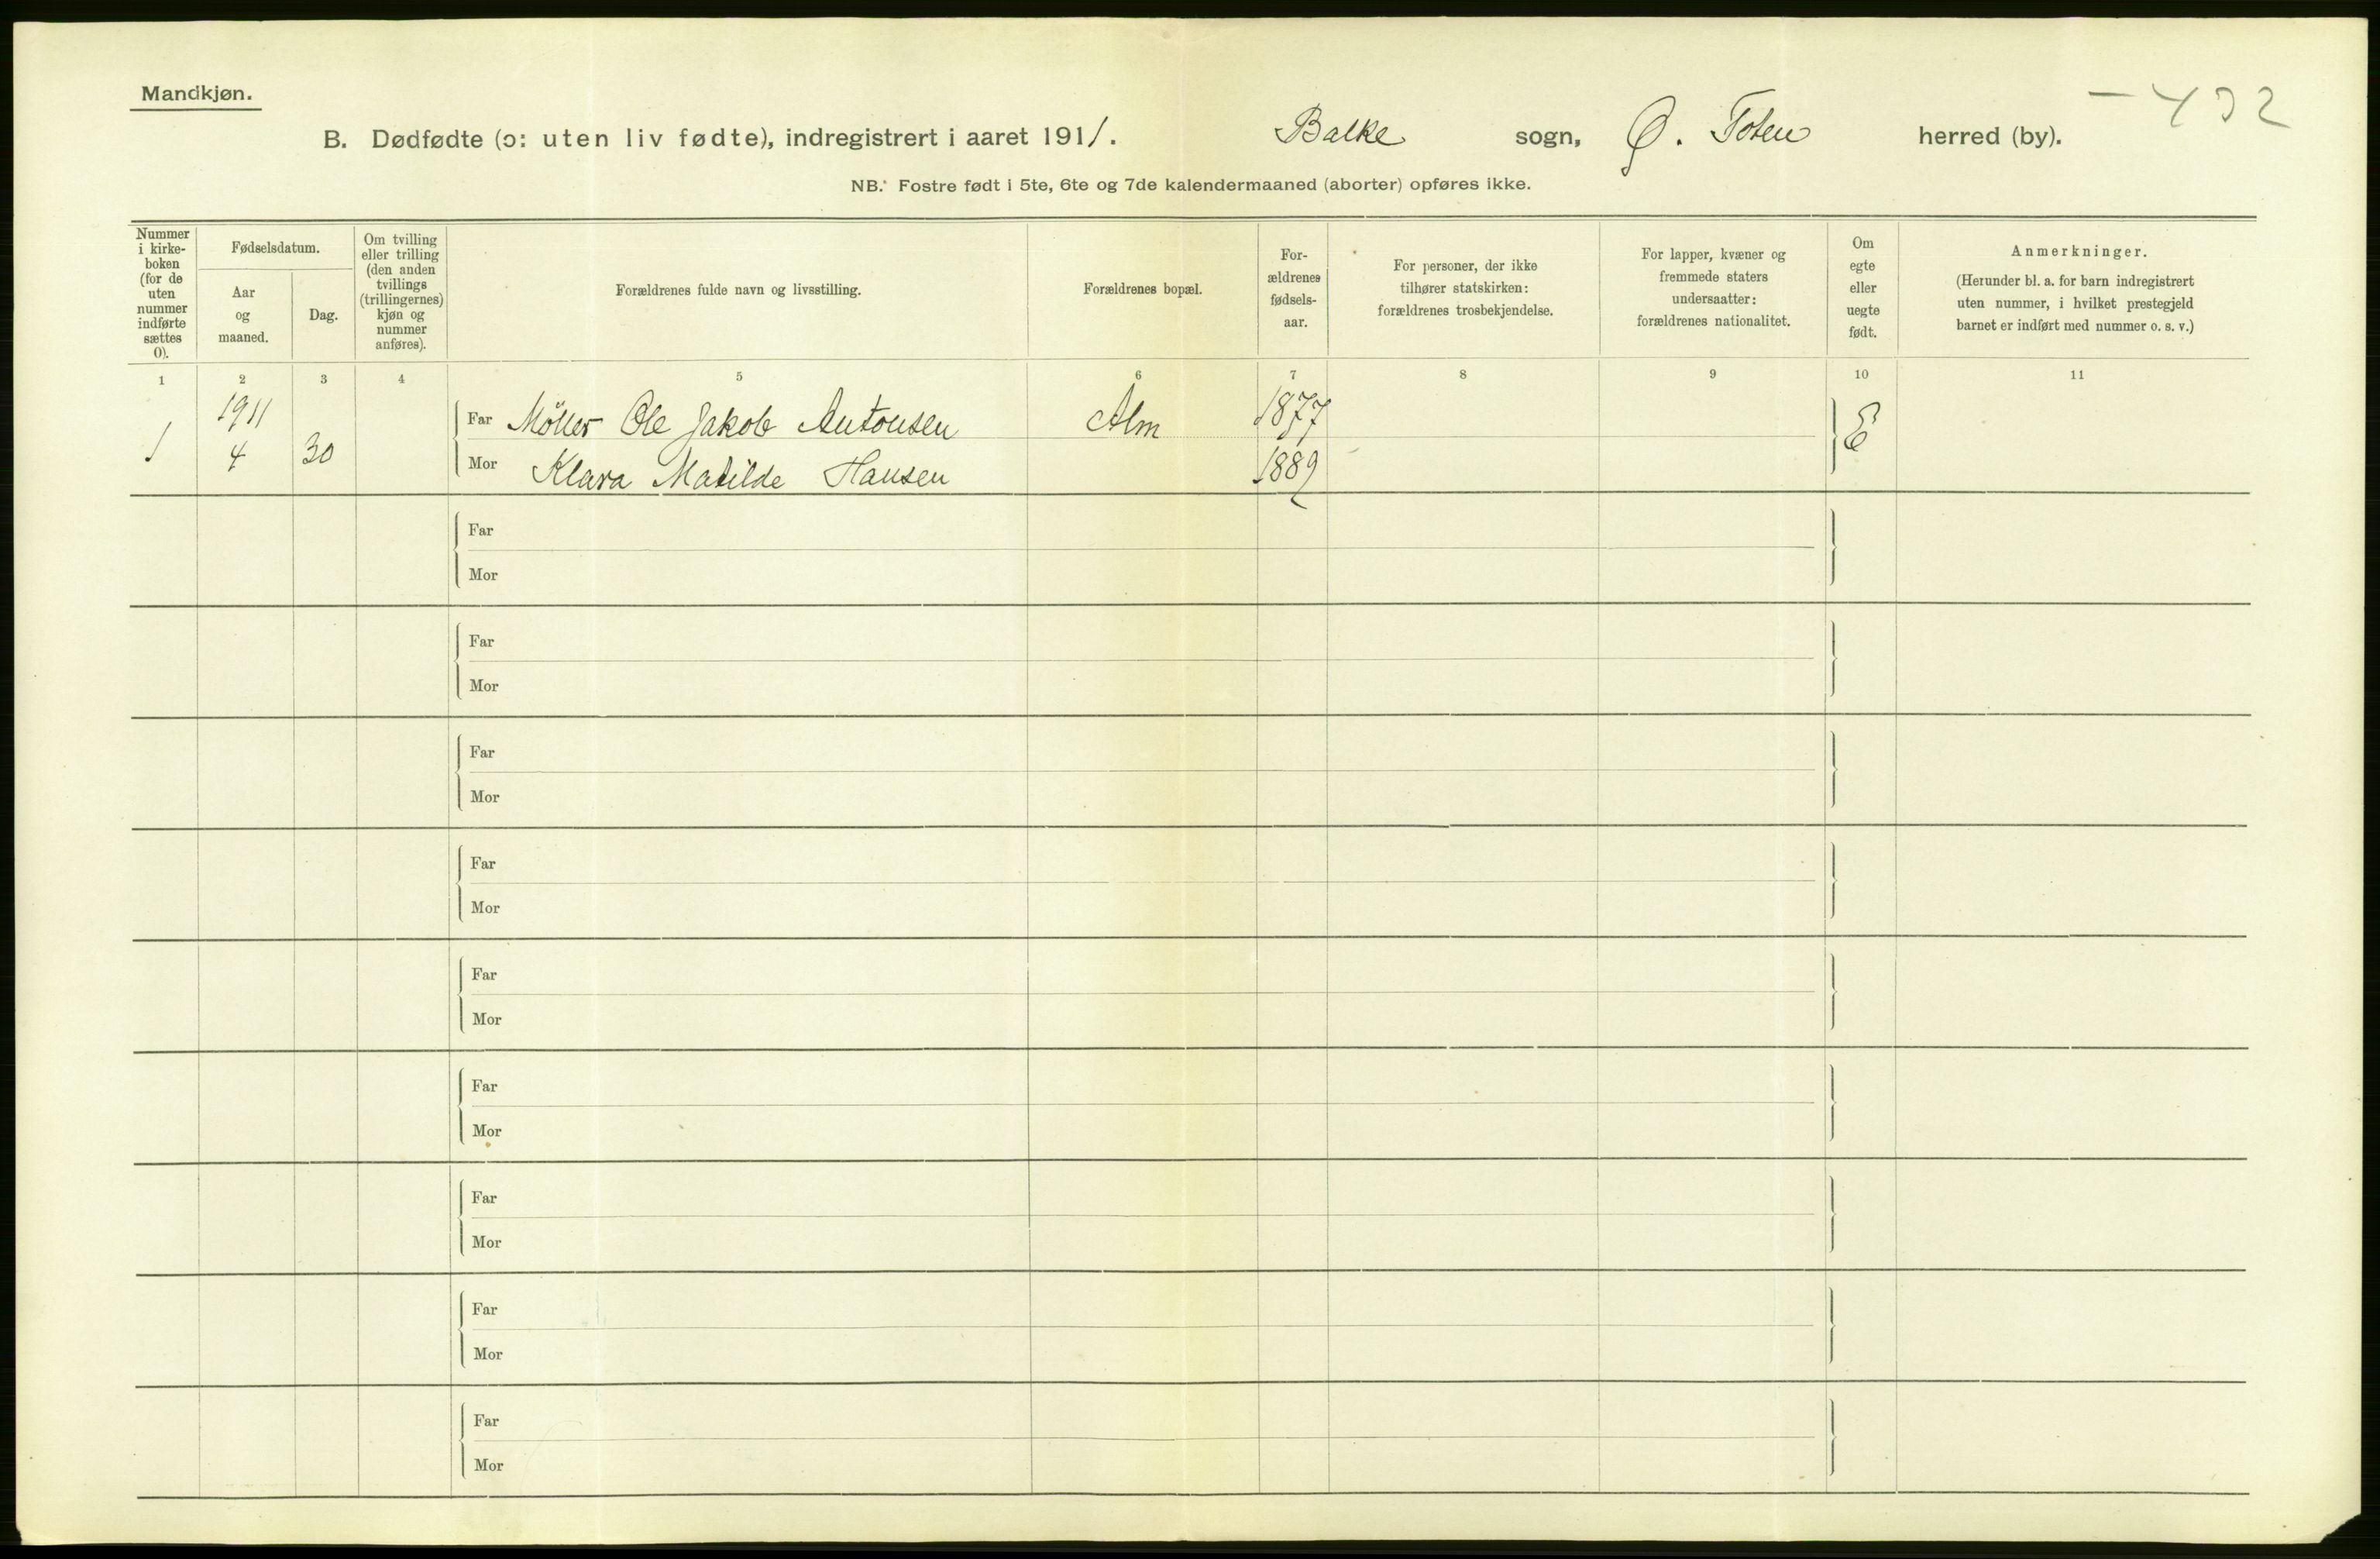 Mandkjøn.
B. Dødfødte (ɔ: uten liv fødte), indregistrert i aaret 1911. Balke sogn, Ø. Toten herred (by).
NB. Fostre født i 5te, 6te og 7de kalendermaaned (aborter) opføres ikke.
Nummer
i kirke-
boken
(for de
uten
nummer
indførte
sættes
0).
Fødselsdatum.
Aar
og
maaned.
Dag.
Om tvilling
eller trilling
(den anden
tvillings
(trillingernes)
kjøn og
nummer
anføres).
Forældrenes fulde navn og livsstilling.
Forældrenes bopæl.
For-
ældrenes
fødsels-
aar.
For personer, der ikke
tilhører statskirken:
forældrenes trosbekjendelse.
For lapper, kvæner og
fremmede staters
undersaatter:
forældrenes nationalitet.
Om
egte
eller
uegte
født.
Anmerkninger.
(Herunder bl. a. for barn indregistrert
uten nummer, i hvilket prestegjeld
barnet er indført med nummer o. s. v.)
1 2 3 4 5 6 7 8 9 10 11
1911
Far Möller Ole Jakob Antonsen Alm 1877
1 4 30 E
Mor Klara Matilde Hansen 1889
Far
Mor
Far
Mor
Far
Mor
Far
Mor
Far
Mor
Far
Mor
Far
Mor
Far
Mor
Far
Mor